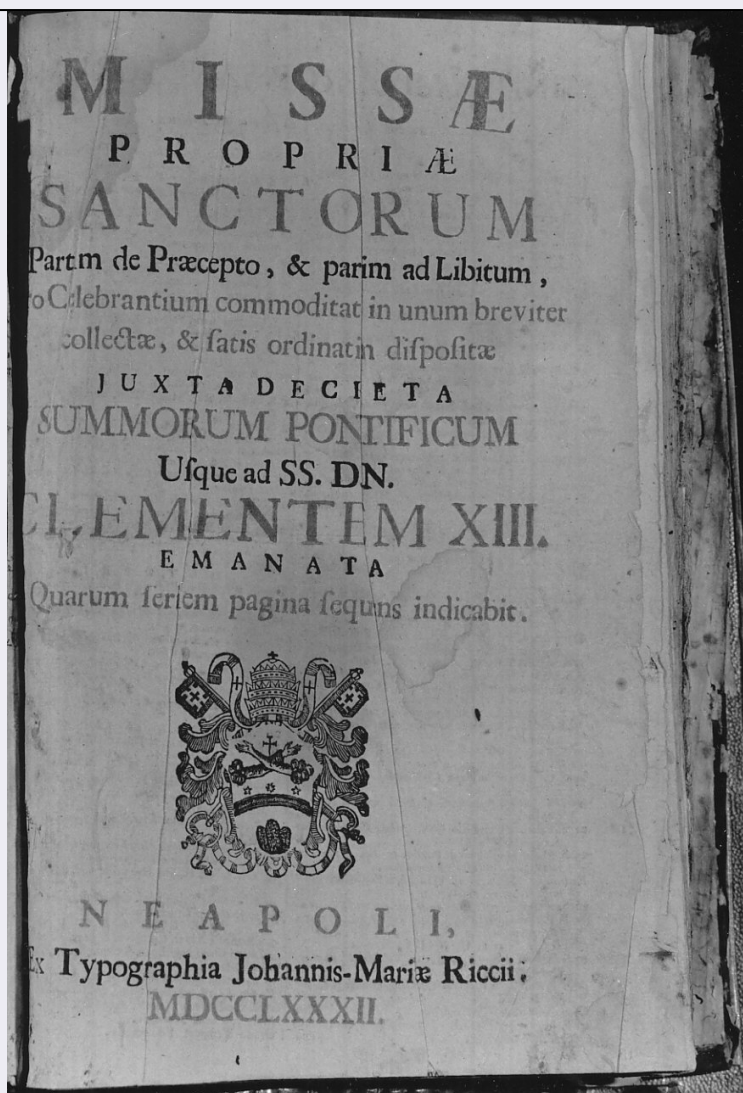 MISSÆ
PROPRIÆ
SANCTORUM
Partm de Præcepto, & parim ad Libitum,
o Celebrantium commoditat in unum breviter
collectæ, & ſatis ordinatin diſpoſitæ
JUXTA DECIETA
SUMMORUM PONTIFICUM
Uſque ad SS. DN.
CLEMENTEM XIII.
EMANATA
Quarum ſeriem pagina ſequns indicabit.
NEAPOLI,
Ex Typographia Johannis-Mariæ Riccii:
MDCCLXXXII.